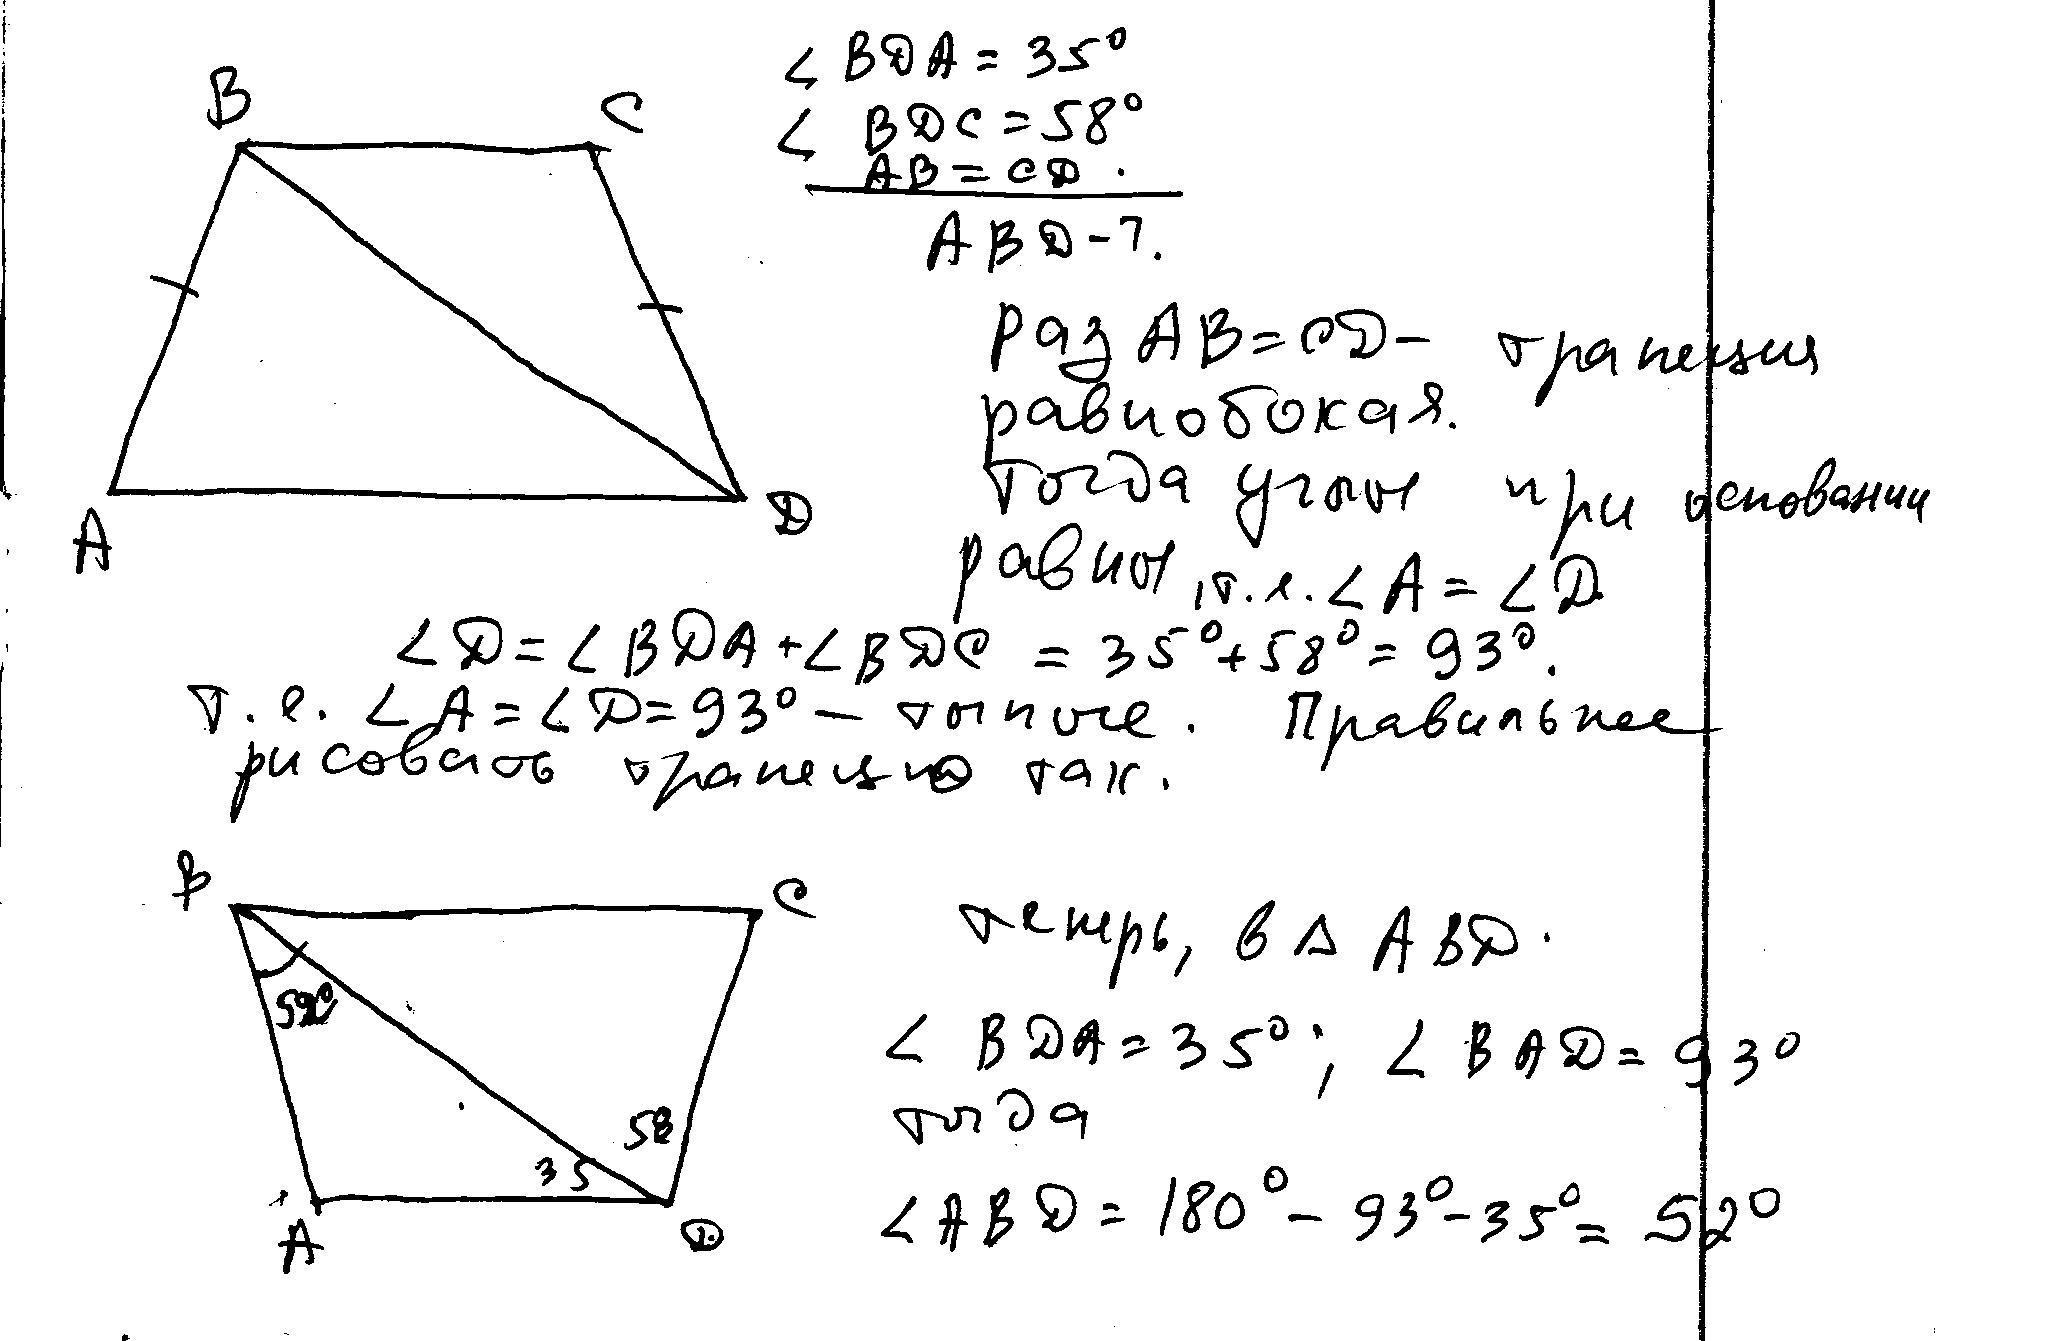 B C
∠ BDA = 35°
∠ BDC = 58°
AB = CD.
ABD - ?.
A D
Раз AB = CD - трапеция
равнобокая.
Тогда углы при основании
равны, т.е. ∠A = ∠D
∠D = ∠BDA + ∠BDC = 35° + 58° = 93°.
Т.е. ∠A = ∠D = 93° - тупые. Правильнее
рисовать трапецию так.
B C
теперь, в △ ABD.
52°
∠ BDA = 35°; ∠ BAD = 93°
тогда
58
35
∠ABD = 180° - 93° - 35° = 52°
A D